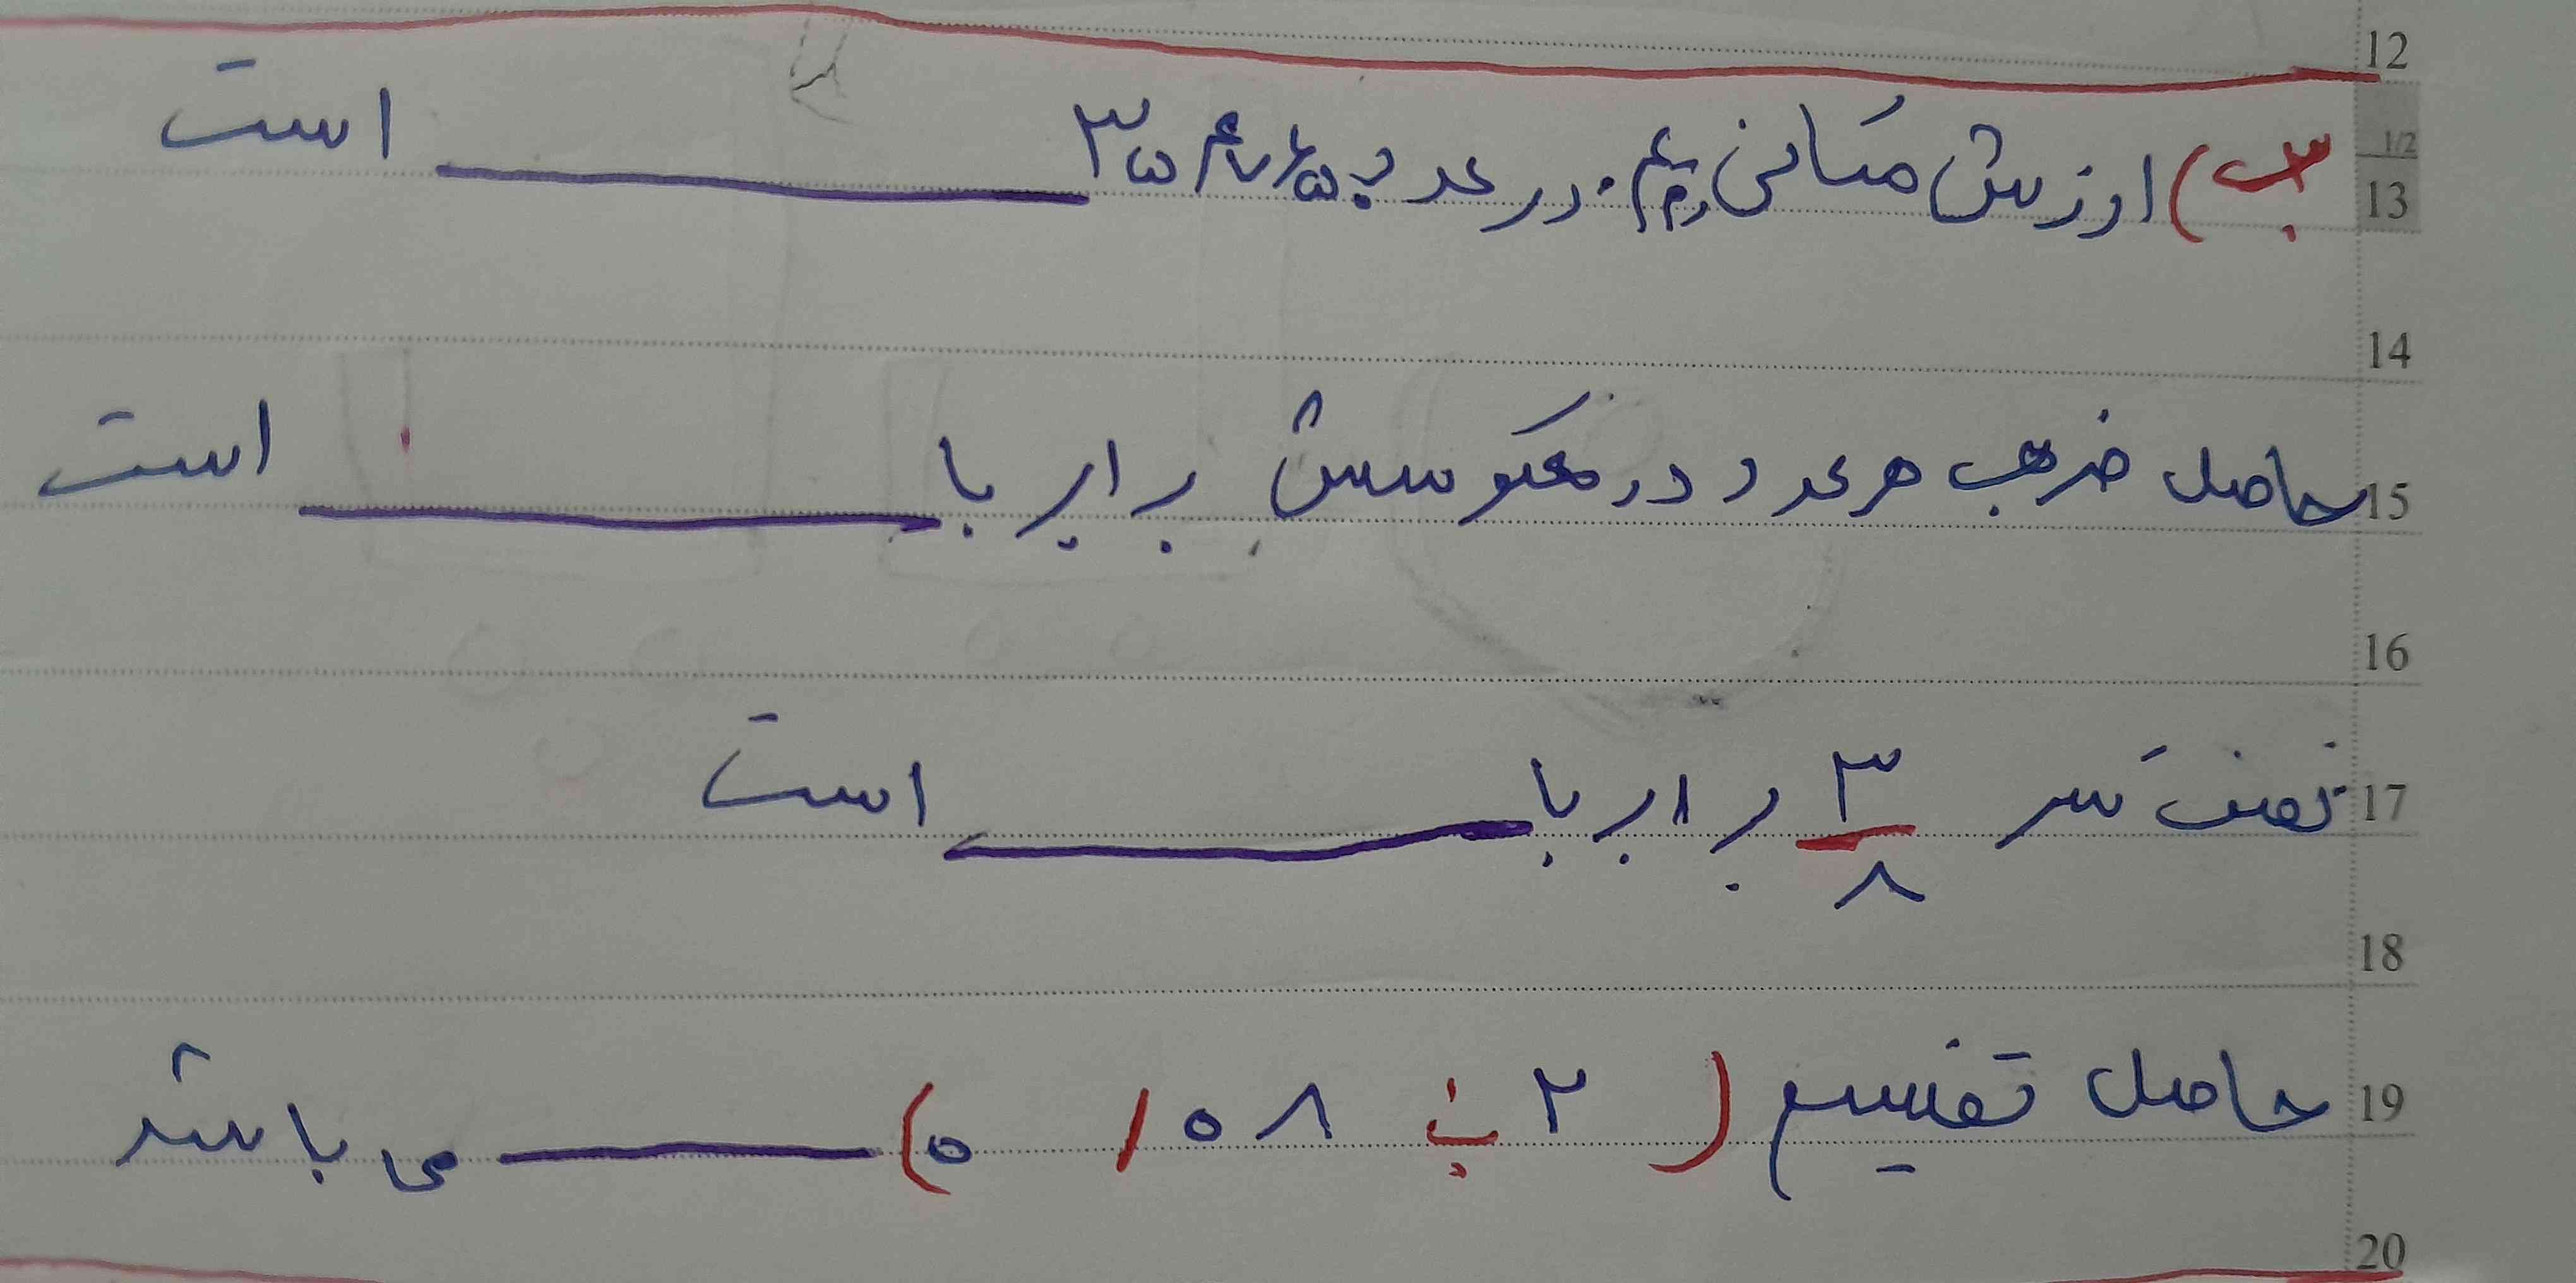 12
1/2
13
ب) ارزش مکانی رقم ۰ در عدد ۳۵۶۷/۵ است
14
15
حاصل ضرب هر عدد در معکوسش برابر با است
16
17
نصف کسر ۳/۸ برابر با است
18
19
حاصل تقسیم (۲ ÷ ۰/۰۸) می باشد
20